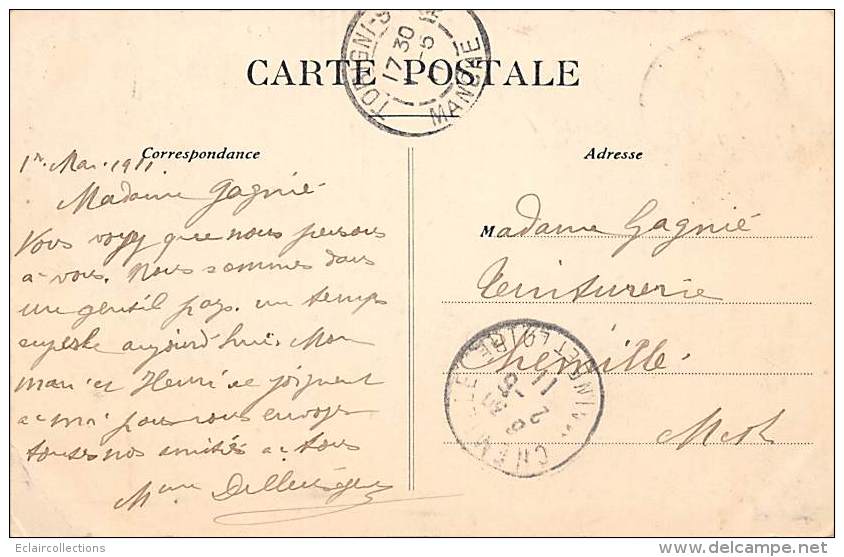 CARTE POSTALE
TORIGNI-S
17 30
-5
MANCHE
Correspondance
Adresse
1er Mai 1911
Madame Gagnié
Vous voyez que nous pensons
à vous. Nous sommes dans
un gentil pays. un temps
superbe aujourd'hui. Mon
mari et Henri se joignent
à moi pour vous envoyer
toutes nos amitiés à tous
Mme
Madame Gagnié
Teinturerie
Chemillé.
CHEMILLE
MAINE ET LOIRE
Eclaircollections
www.delcampe.net